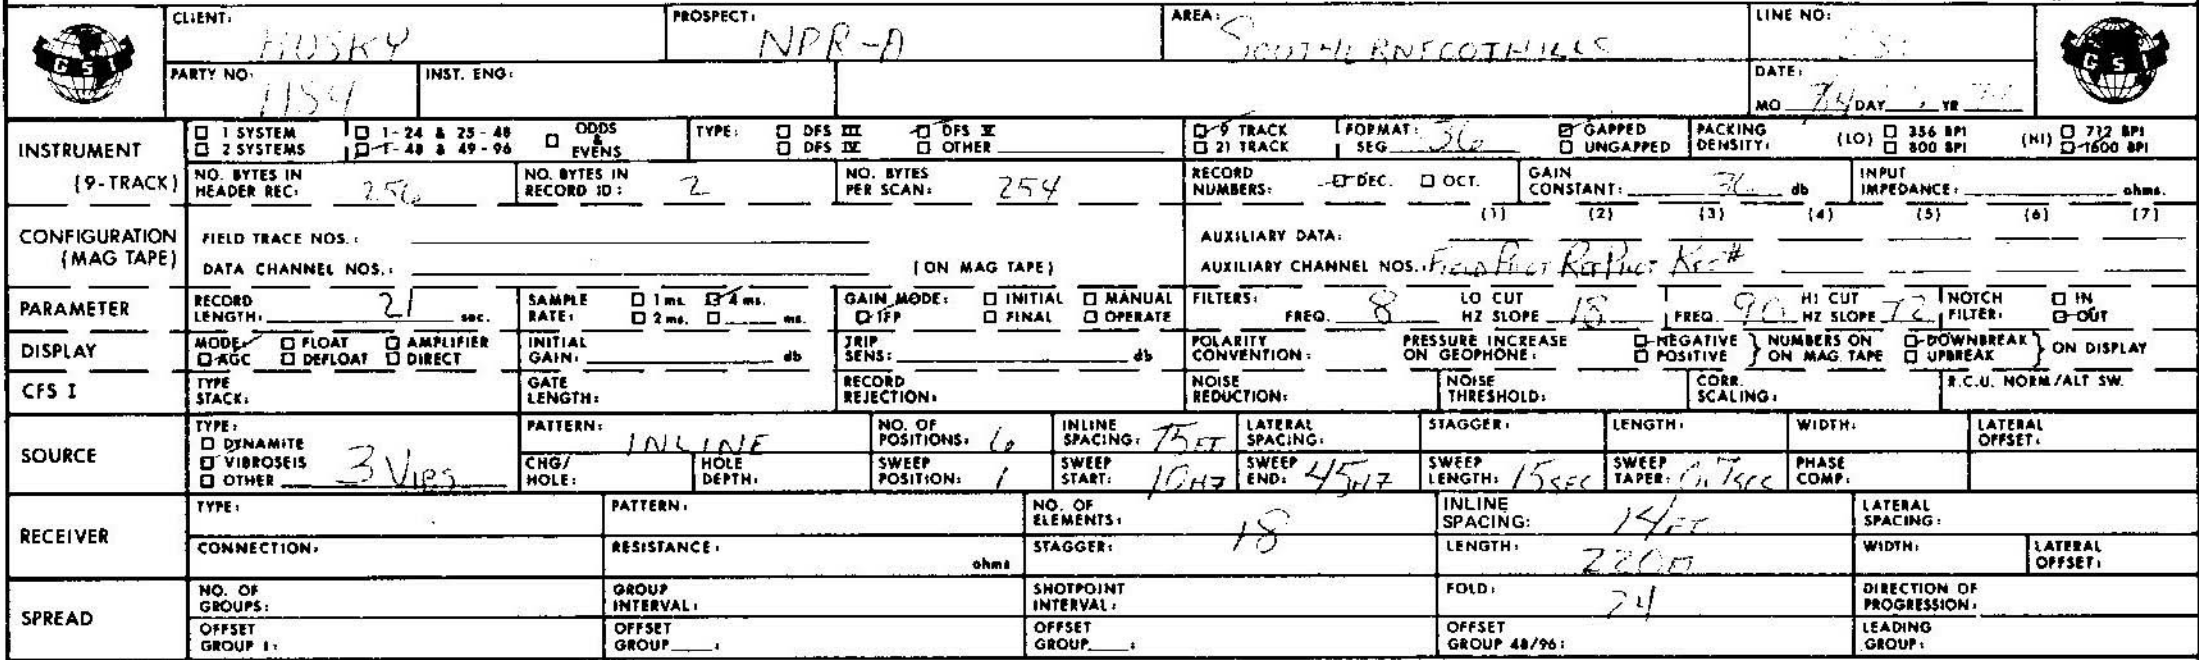 CLIENT: HUSKY PROSPECT: NPR-A AREA: SOUTHERN FOOTHILLS LINE NO:
GSI GSI
PARTY NO: 1154 INST. ENG: DATE:
MO DAY YR
INSTRUMENT (9-TRACK)
1 SYSTEM 1-24 & 25-48 ODDS & EVENS TYPE: DFS III DFS V 9 TRACK FORMAT: SEG 36 GAPPED PACKING DENSITY: (LO) 356 BPI (HI) 712 BPI
2 SYSTEMS 1-48 & 49-96 DFS IV OTHER 21 TRACK UNGAPPED 800 BPI 1600 BPI
NO. BYTES IN HEADER REC: 256 NO. BYTES IN RECORD ID: 2 NO. BYTES PER SCAN: 254 RECORD NUMBERS: DEC. OCT. GAIN CONSTANT: 36 db INPUT IMPEDANCE: ohms.
CONFIGURATION (MAG TAPE)
(1) (2) (3) (4) (5) (6) (7)
FIELD TRACE NOS.: AUXILIARY DATA:
DATA CHANNEL NOS.: (ON MAG TAPE) AUXILIARY CHANNEL NOS.: Field Pilot Ref Pilot
PARAMETER RECORD LENGTH: 21 sec. SAMPLE RATE: 1 ms. 4 ms. 2 ms. ms. GAIN MODE: INITIAL MANUAL IFP FINAL OPERATE FILTERS: FREQ. 8 LO CUT HZ SLOPE 18 FREQ. 90 HI CUT HZ SLOPE 72 NOTCH FILTER: IN OUT
DISPLAY MODE: FLOAT AMPLIFIER AGC DEFLOAT DIRECT INITIAL GAIN: db TRIP SENS: db POLARITY CONVENTION: PRESSURE INCREASE ON GEOPHONE: NEGATIVE POSITIVE } NUMBERS ON MAG. TAPE DOWNBREAK UPBREAK } ON DISPLAY
CFS I TYPE STACK: GATE LENGTH: RECORD REJECTION: NOISE REDUCTION: NOISE THRESHOLD: CORR. SCALING: R.C.U. NORM/ALT SW.
SOURCE TYPE: DYNAMITE VIBROSEIS OTHER 3 VIBS PATTERN: INLINE NO. OF POSITIONS: 6 INLINE SPACING: 75 FT LATERAL SPACING: STAGGER: LENGTH: WIDTH: LATERAL OFFSET:
CHG/HOLE: HOLE DEPTH: SWEEP POSITION: 1 SWEEP START: 10 HZ SWEEP END: 45 HZ SWEEP LENGTH: 15 SEC SWEEP TAPER: 0.7 SEC PHASE COMP:
RECEIVER TYPE: PATTERN: NO. OF ELEMENTS: 18 INLINE SPACING: 14 FT LATERAL SPACING:
CONNECTION: RESISTANCE: ohms STAGGER: LENGTH: 220 WIDTH: LATERAL OFFSET:
SPREAD NO. OF GROUPS: GROUP INTERVAL: SHOTPOINT INTERVAL: FOLD: 24 DIRECTION OF PROGRESSION:
OFFSET GROUP 1: OFFSET GROUP : OFFSET GROUP : OFFSET GROUP 48/96: LEADING GROUP: